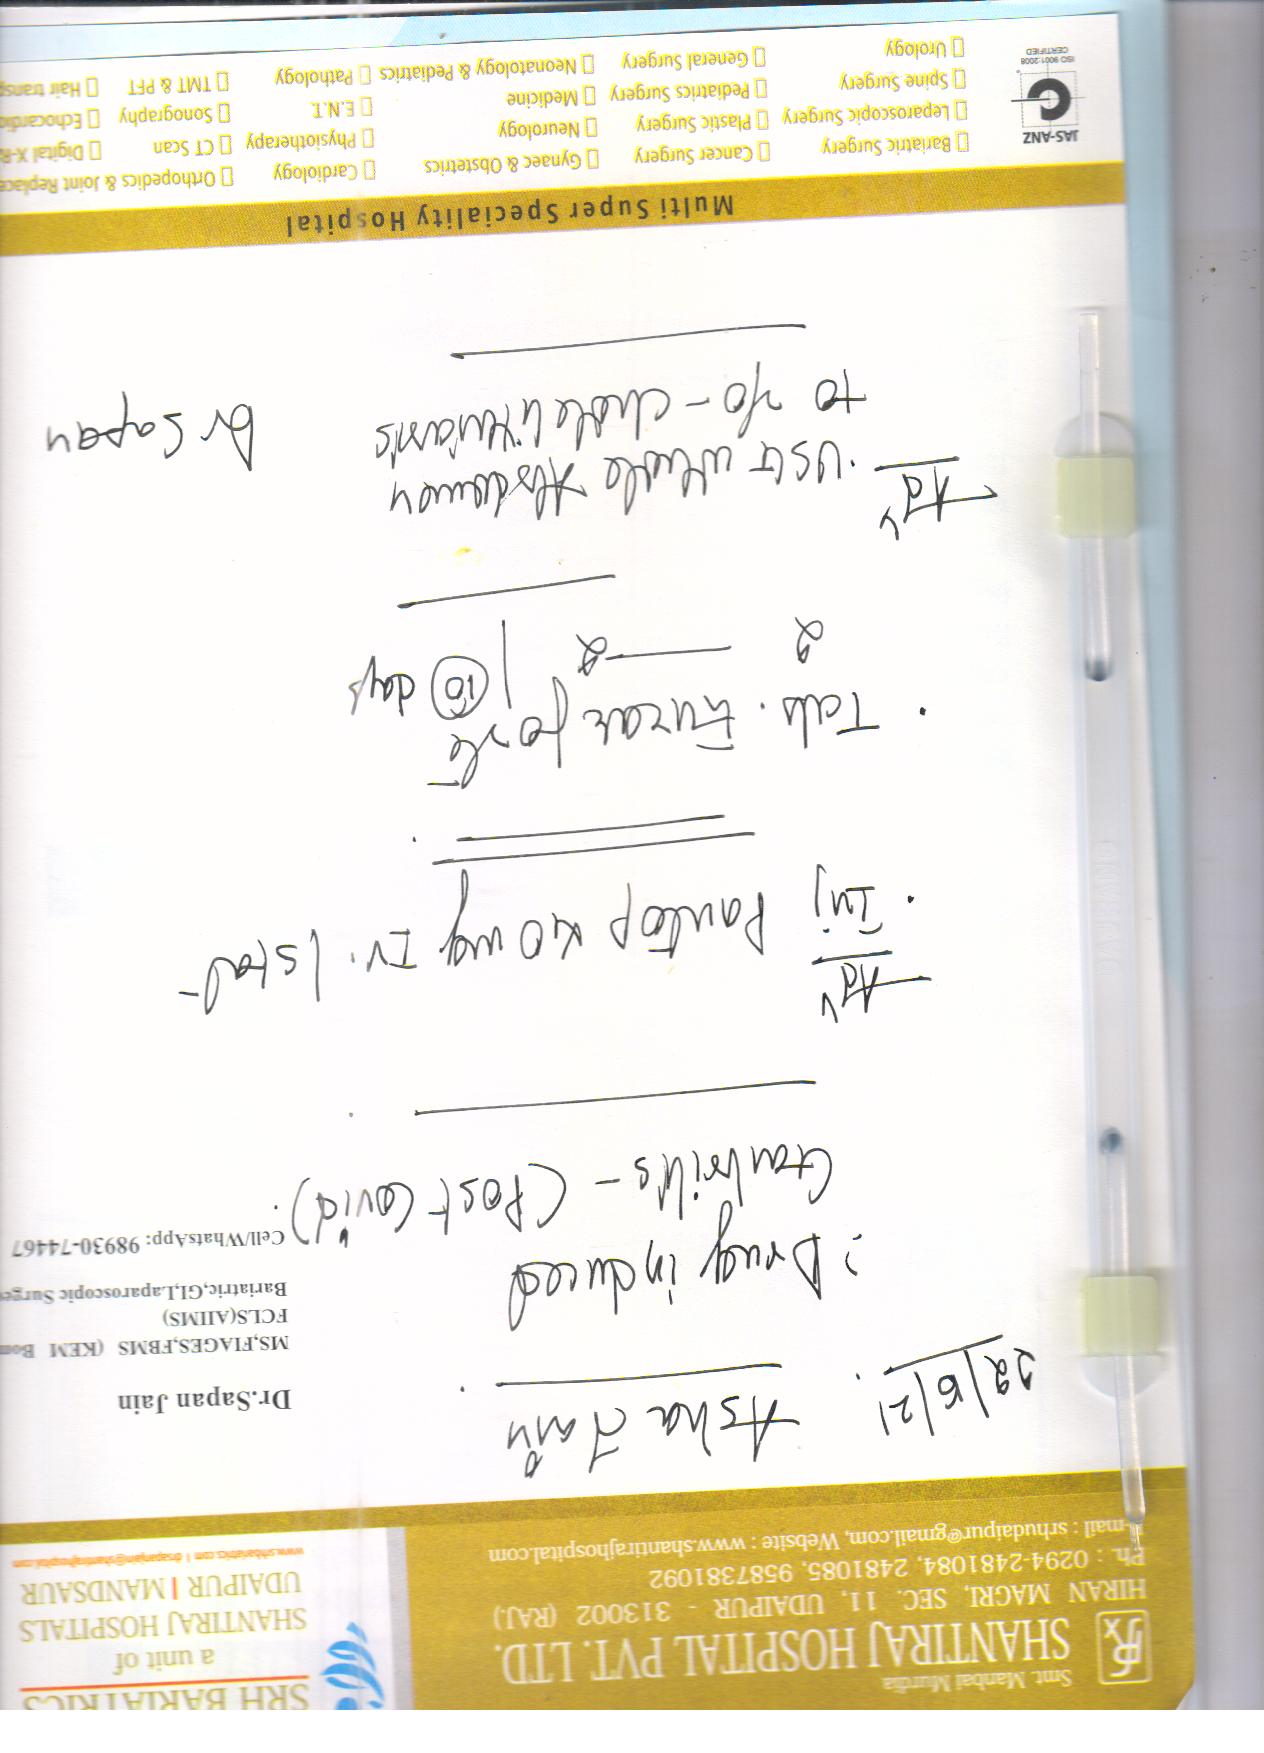 Smt. Manbai Murdia
SHANTIRAJ HOSPITAL PVT. LTD.
HIRAN MAGRI, SEC. 11, UDAIPUR - 313002 (RAJ.)
Ph. : 0294-2481084, 2481085, 9587381092
mail : srhudaipur@gmail.com, Website : www.shantirajhospital.com
SRH BARIATRICS
a unit of
SHANTIRAJ HOSPITALS
UDAIPUR | MANDSAUR
www.srhbariatrics.com | drsapanjain@shantirajhospital.com
Dr.Sapan Jain
MS,FIAGES,FBMS (KEM Bom
FCLS(AIIMS)
Bariatric,GI,Laparoscopic Surgeo
Cell/WhatsApp: 98930-74467
Asha Jain
: Drug induced
Gastritis - (Post Covid)
Adv
. Inj Pantop 40 mg IV. / stat
. Tab. Enzar forte
2 — 2 | 10 days
Adv
. USG whole Abdomen
to r/o - cholelithiasis
Dr Sapan
Multi Super Speciality Hospital
Bariatric Surgery Cancer Surgery Gynaec & Obstetrics Cardiology Orthopedics & Joint Replace
Leparoscopic Surgery Plastic Surgery Neurology Physiotherapy CT Scan Digital X-R
Spine Surgery Pediatrics Surgery Medicine E.N.T. Sonography Echocardio
Urology General Surgery Neonatology & Pediatrics Pathology TMT & PFT Hair trans
JAS-ANZ
ISO 9001:2008
CERTIFIED